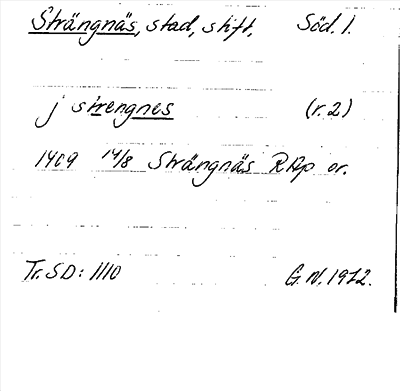 Strängnäs, stad, stift. Söd. l.
j strengnes (r. 2)
1409 14/8 Strängnäs RAp or.
Tr. SD: 1110 G. N. 1972.